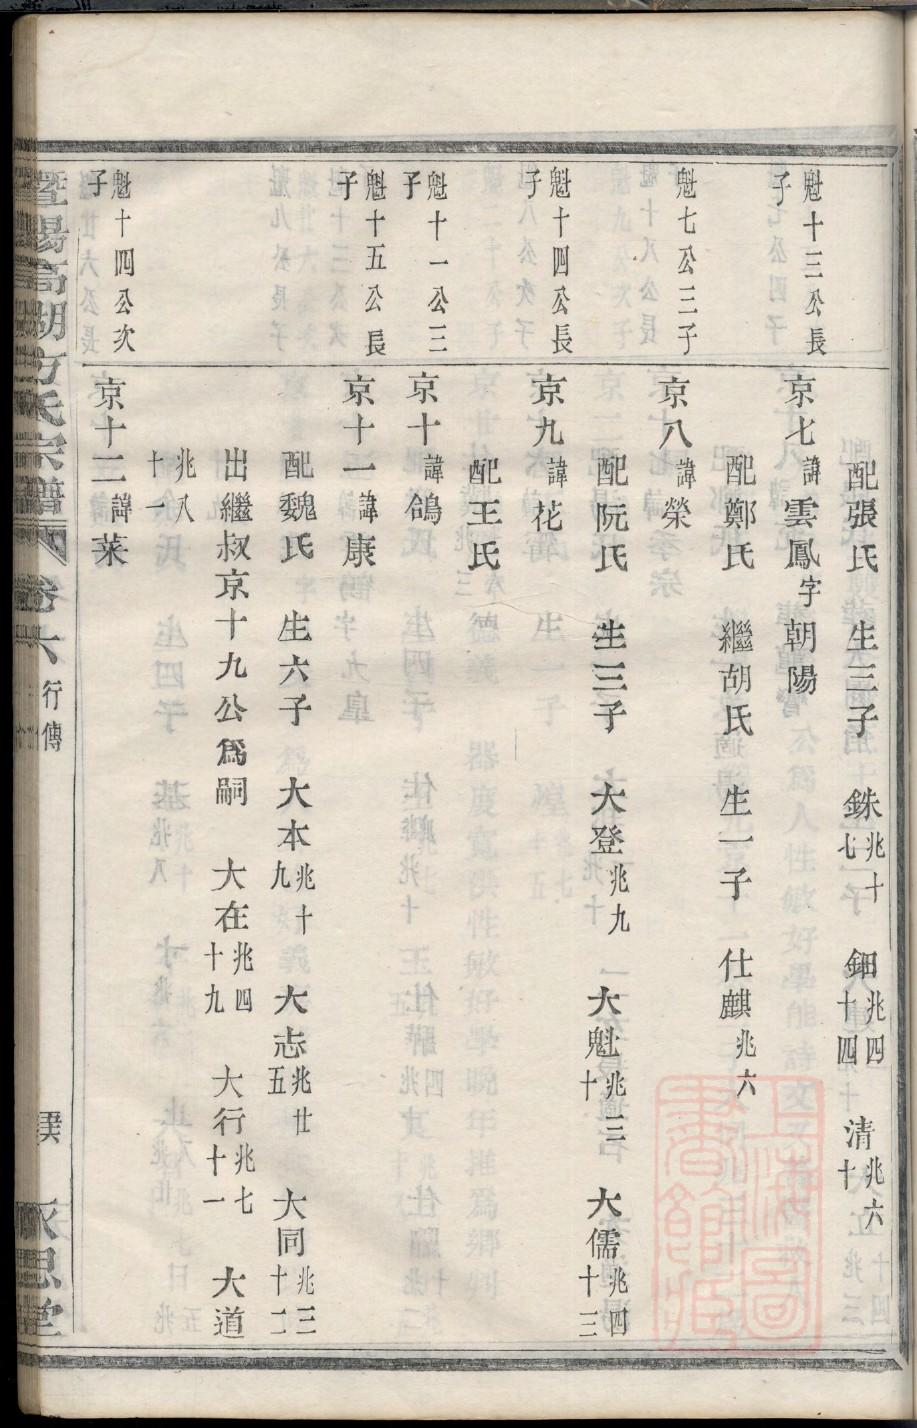 配張氏 生三子 銖兆十七 鈿兆四十四 清兆六十
魁十三公長子
京七諱雲鳳字朝陽
配鄭氏 繼胡氏 生一子 仕麒兆六
魁七公三子
京八諱榮
配阮氏 生三子 大登兆九 大魁兆三十 大儒兆四十三
魁十四公長子
京九諱花
配王氏
魁十一公三子
京十諱鴿
魁十五公長子
京十一諱康
配魏氏 生六子 大本兆十九 大志兆廿五 大同兆三十二
出繼叔京十九公爲嗣 大在兆四十九 大行兆七十一 大道
兆八十一
魁十四公次子
京十二諱菜
暨陽高湖方氏宗譜 卷六 行傳